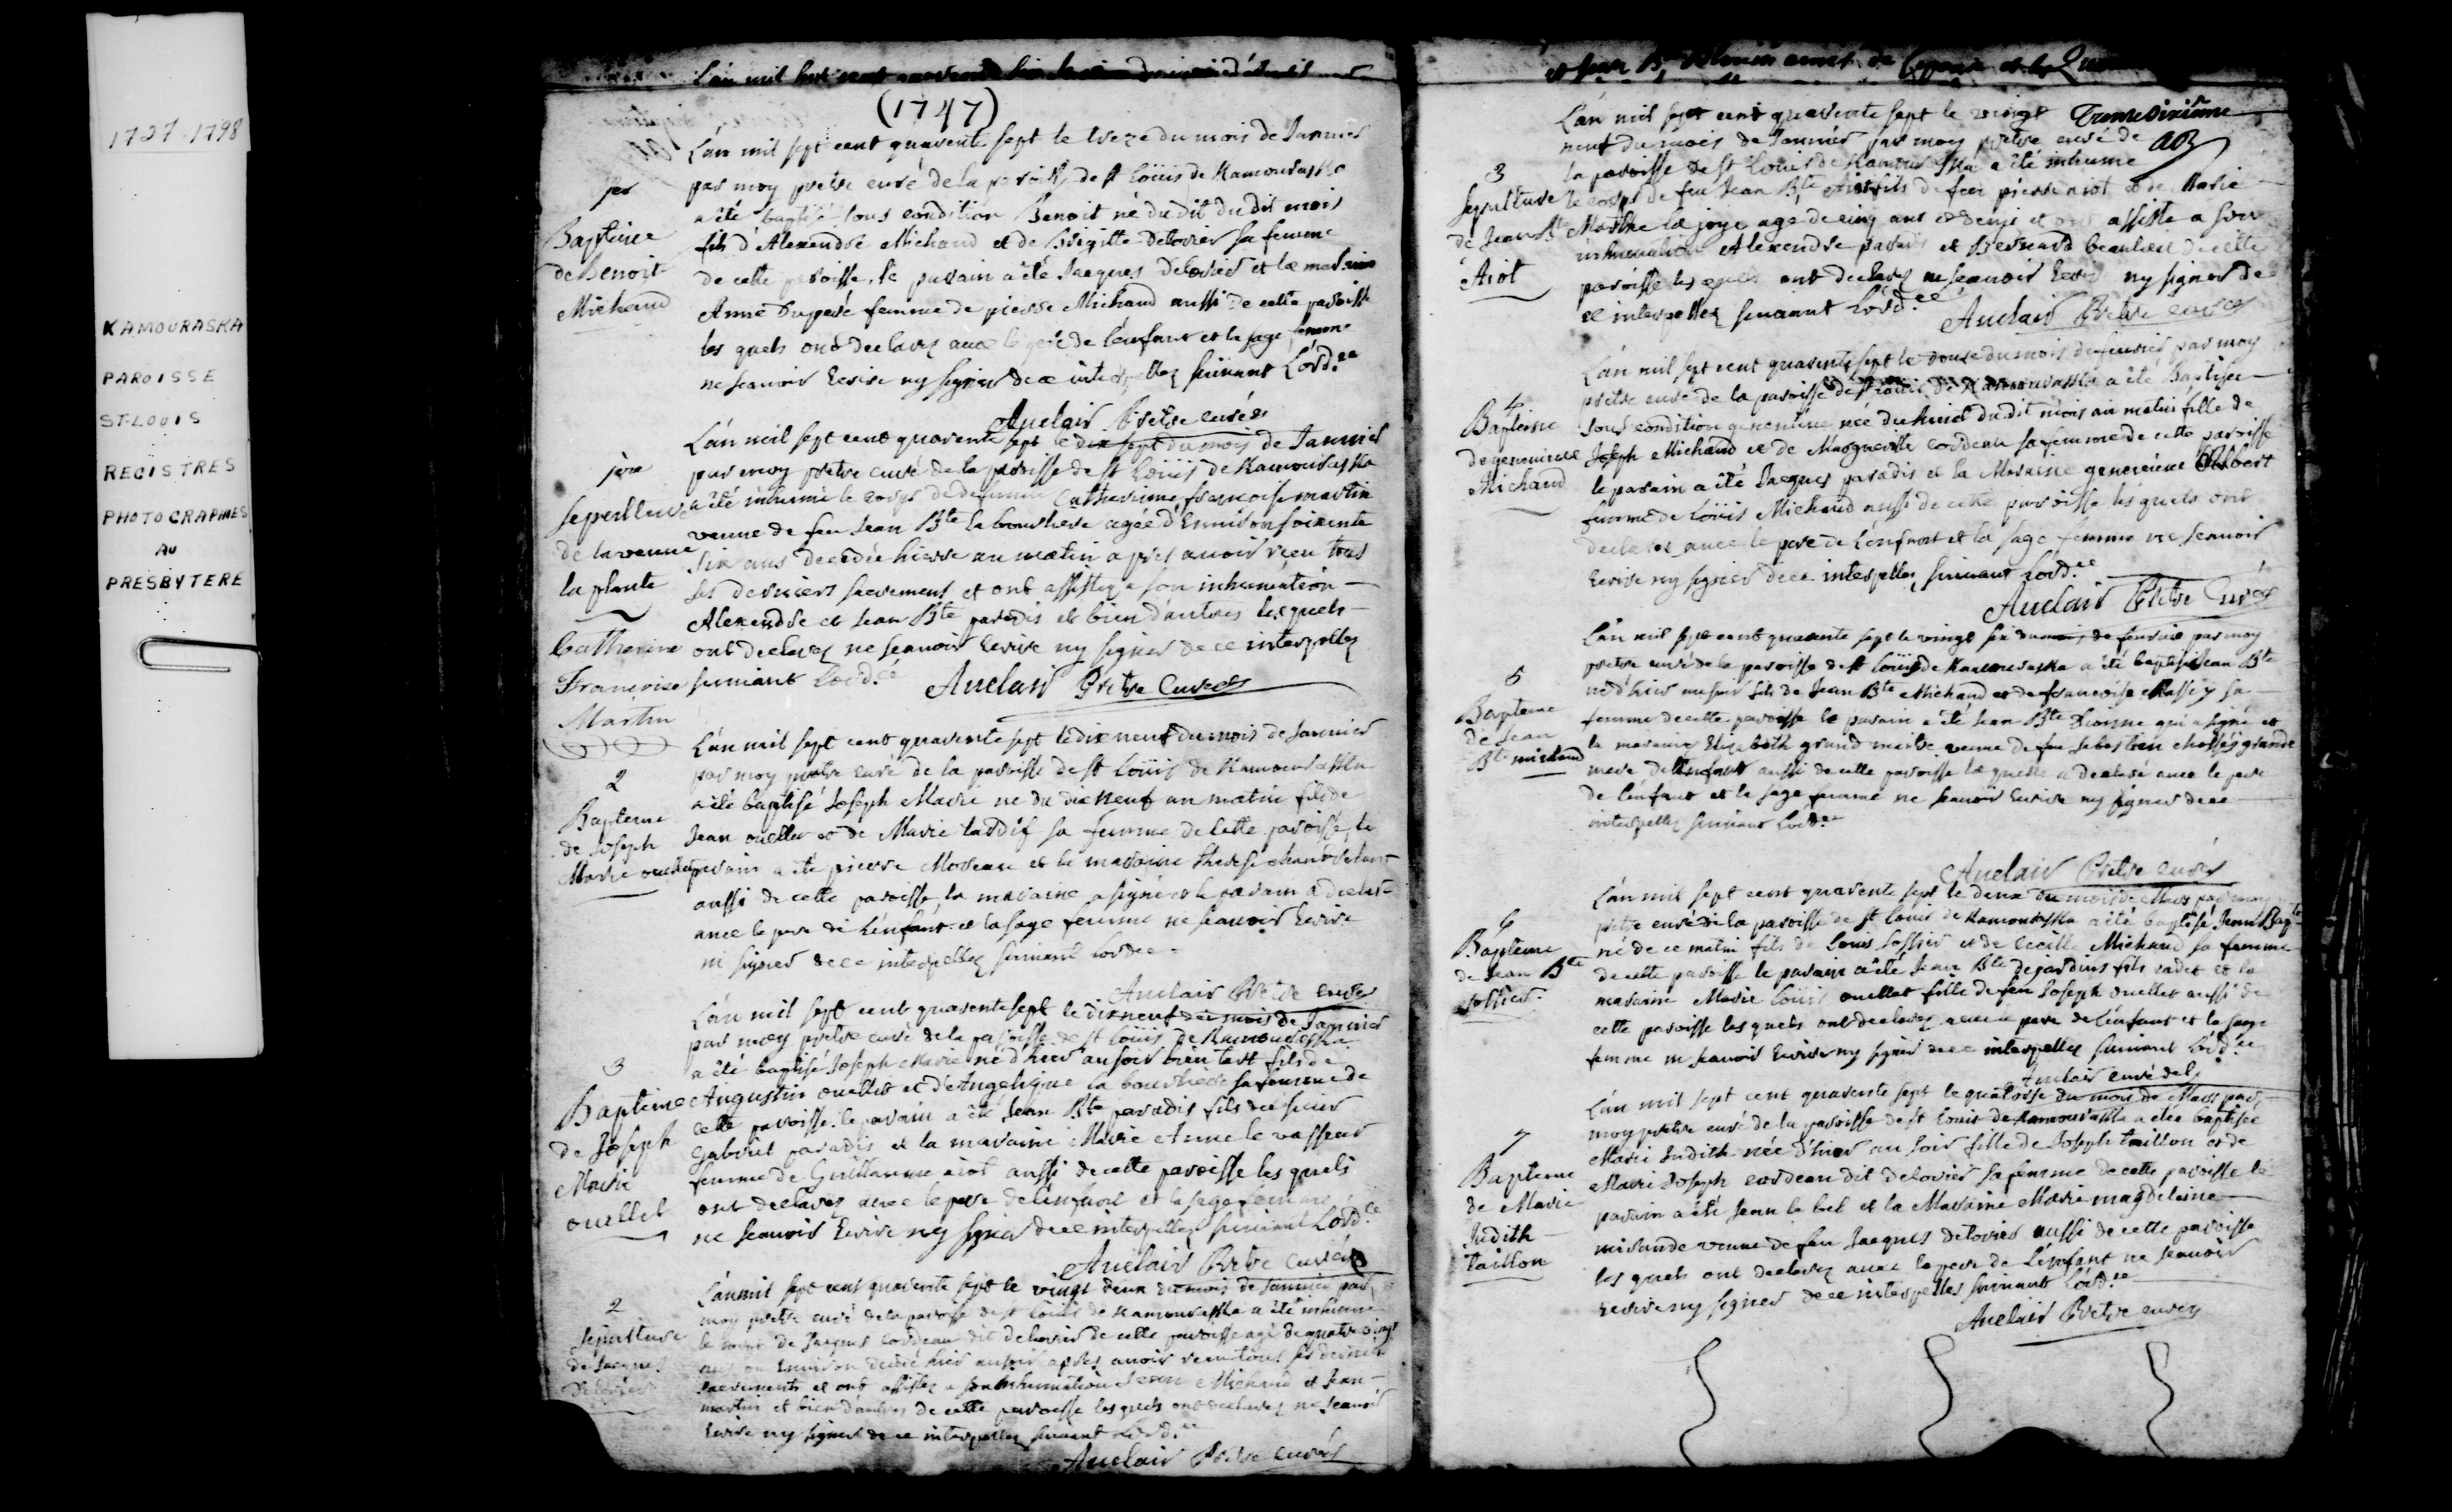 1727-1798
KAMOURASKA
PAROISSE
ST-LOUIS
REGISTRES
PHOTOGRAPHIES
AU
PRESBYTERE
L'an mil sept cent
(1747)
L'an mil sept cent quarente sept le treze du mois de Janvier
par moy pretre curé de la paroisse de st Loüis de Kamouraska
a été baptisé sous condition Benoit né du dit du dit mois
fils d'Alexendre Michaud et de Brigitte Delorier sa femme
de cette paroisse, le parain a été Jacques Delorier et la maraine
Anne Duperé femme de pierre Michaud aussi de cette paroisse
les quels ont declarez avec le pere de l'enfant et la sage femme
ne scauoir Ecrire ny signer de ce interpellez suiuant L'ord.ce
Auclair Pretre curé
1er
Bapteme
de Benoit
Michaud
L'an mil sept cent quarente sept le dix sept du mois de Januier
par moy pretre curé de la paroisse de st Loüis de Kamouraska
a été inhumé le corps de defunte Catherine francoise martin
veuue de feu Jean Bte la bourliere agée d'Enuiron soixente
six ans decedée hierre au matin apres auoir reçu tous
ses derniers sacrements et ont assistez a son inhumation
Alexendre et Jean Bte paradis et bien d'autres lesquels
ont declarez ne scauoir Ecrire ny signer de ce interpellez
suiuant L'ord.ce Auclair Pretre Curé
1ere
sepulture
de la veuue
la plante
Catherine
Françoise
Martin
L'an mil sept cent quarente sept le dix neuf du mois de Januier
par moy pretre curé de la paroisse de st Loüis de Kamouraska
a été baptisé Joseph Marie né du dix neuf au matin fils de
Jean ouellet et de Marie tardif sa femme de cette paroisse, le
parain a été pierre Moreau et la maraine therese
aussi de cette paroisse, la maraine a signé et le parain a declaré
auec le pere de L'enfant et la sage femme ne scauoir Ecrire
ni signer de ce interpellez suiuant lordce
Auclair Pretre curé
2
Bapteme
de Joseph
Marie ouellet
L'an mil sept cent quarente sept le dix neuf du mois de Januier
par moy pretre curé de la paroisse de st Loüis de Kamouraska
a été baptisé Joseph Marie né d'hier au soir bien tart fils de
Augustin ouellet et d'Angelique la bourliere sa femme de
cette paroisse. le parain a été Jean Bte paradis fils de sieur
Gabriel paradis et la maraine Marie Anne le vasseur
femme de Guillaume aiot aussi de cette paroisse les quels
ont declarez auec le pere de l'enfant et la sage femme
ne scauoir Ecrire ny signer de ce interpellez suiuant L'ord.ce
Auclair Pretre curé
3
Bapteme
de Joseph
Marie
ouellet
L'an mil sept cent quarente sept le vingt deux du mois de Januier par
moy pretre curé de la paroisse de st Loüis de Kamouraska a été inhumé
le corps de Jacques cordeau dit delorier de cette paroisse agé de quatre vingt
ans ou Enuiron decedé hier au soir apres auoir reçu tous ses derniers
sacrements et ont assistez a son inhumation Jean Michaud et Jean
martin et bien d'autres de cette paroisse les quels ont declarez ne scauoir
Ecrire ny signer de ce interpellez suiuant L'ord.ce
Auclair Pretre curé
2
sepulture
de Jacques
Delorier
L'an mil sept cent quarente sept le vingt
neuf du mois de Januier par moy pretre curé de
la paroisse de st Louis de Kamouraska a été inhumé
le corps de feu Jean Bte Aiot fils de feu pierre aiot et de Marie
Marthe la joye age de cinq ans et demi et ont assisté a son
inhumation Alexendre paradis et Bernard beaulieu de cette
paroisse les quels ont declarez ne scauoir Ecrire ny signer de
ce interpellez suiuant L'ord.ce Auclair Pretre curé
Trente Sixième
3
sepulture
de Jean Bte
Aiot
L'an mil sept cent quarente sept le douze du mois de feurier par moy
pretre curé de la paroisse de st Loüis de Kamouraska a été Baptisée
sous condition geneuieue née du huict du dit mois au matin fille de
Joseph Michaud et de Marguerite cordeau sa femme de cette paroisse
le parain a été Jacques paradis et la Maraine geneuieue Albert
femme de Loüis Michaud aussi de cette paroisse les quels ont
declarez auec le pere de L'enfant et la sage femme ne scauoir
Ecrire ny signer de ce interpellez suiuant Lord.ce
Auclair Pretre Curé
4
Bapteme
de geneuieue
Michaud
L'an mil sept cent quarente sept le vingt six du mois de feurier par moy
pretre curé de la paroisse de st Loüis de Kamouraska a été baptisé Jean Bte
né d'hier au soir fils de Jean Bte Michaud et de francoise sa
femme de cette paroisse le parain a été Jean Bte Dionne qui a signé et
la maraine Elizabeth grand maitre veuue de feu sebastien grande
mere de l'enfant aussi de cette paroisse la quelle a declaré auec le pere
de l'enfant et la sage femme ne scauoir Ecrire ny signer de ce
interpellez suiuant Lord.ce
Auclair Pretre curé
5
Bapteme
de Jean
Bte michaud
L'an mil sept cent quarente sept le deux du mois de Mars par moy
pretre curé de la paroisse de st Louis de Kamouraska a été baptisé Jean Bapte
né de ce matin fils de Louis et de Cecille Michaud sa femme
de cette paroisse le parain a été Jean Bte dejardins fils cadet et la
maraine Marie Loüis ouellet fille de feu Joseph ouellet aussi de
cette paroisse les quels ont declarez auec le pere de l'enfant et la sage
femme ne scauoir Ecrire ny signer de ce interpellez suiuant L'ord.ce
Auclair curé
6
Bapteme
de Jean Bte
L'an mil sept cent quarente sept le quatorse du mois de Mars par
moy pretre curé de la paroisse de st Louis de Kamouraska a été baptisée
Marie Judith née d'hier au soir fille de Joseph taillon et de
Marie Joseph cordeau dit delorier sa femme de cette paroisse le
parain a été Jean le bel et la Maraine Marie magdelaine
mirande veuue de feu Jacques delorier aussi de cette paroisse
les quels ont declarez auec le pere de L'enfant ne scauoir
Ecrire ny signer de ce interpellez suiuant L'ord.ce
Auclair Pretre curé
7
Bapteme
de Marie
Judith
taillon